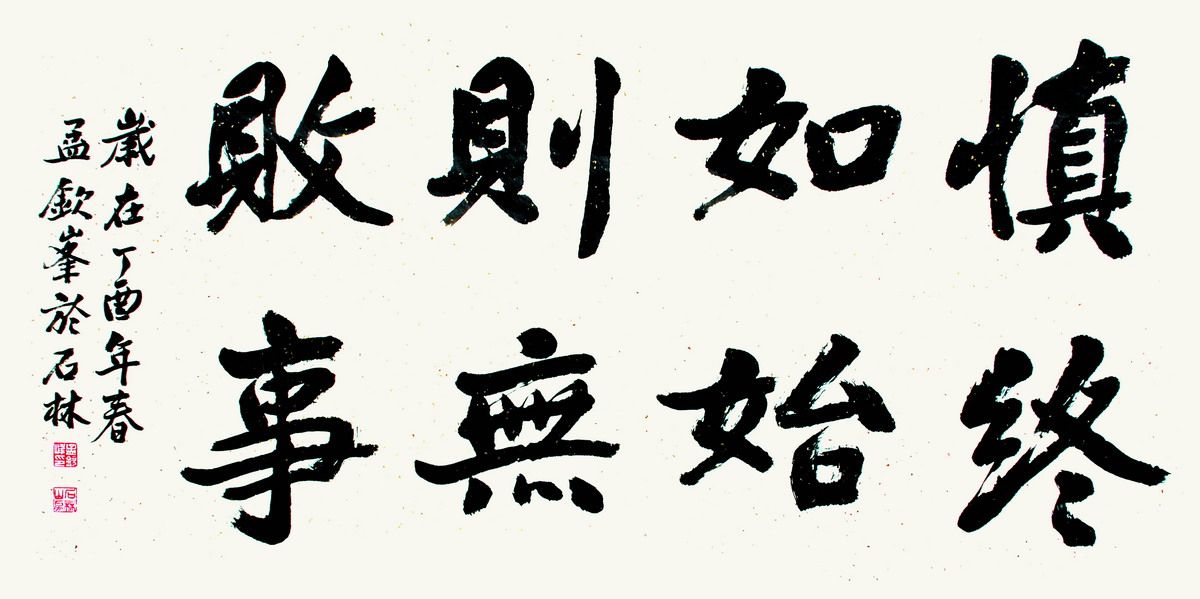 慎終
如始
則無
敗事
歲在丁酉年春
孟欽峯於石林